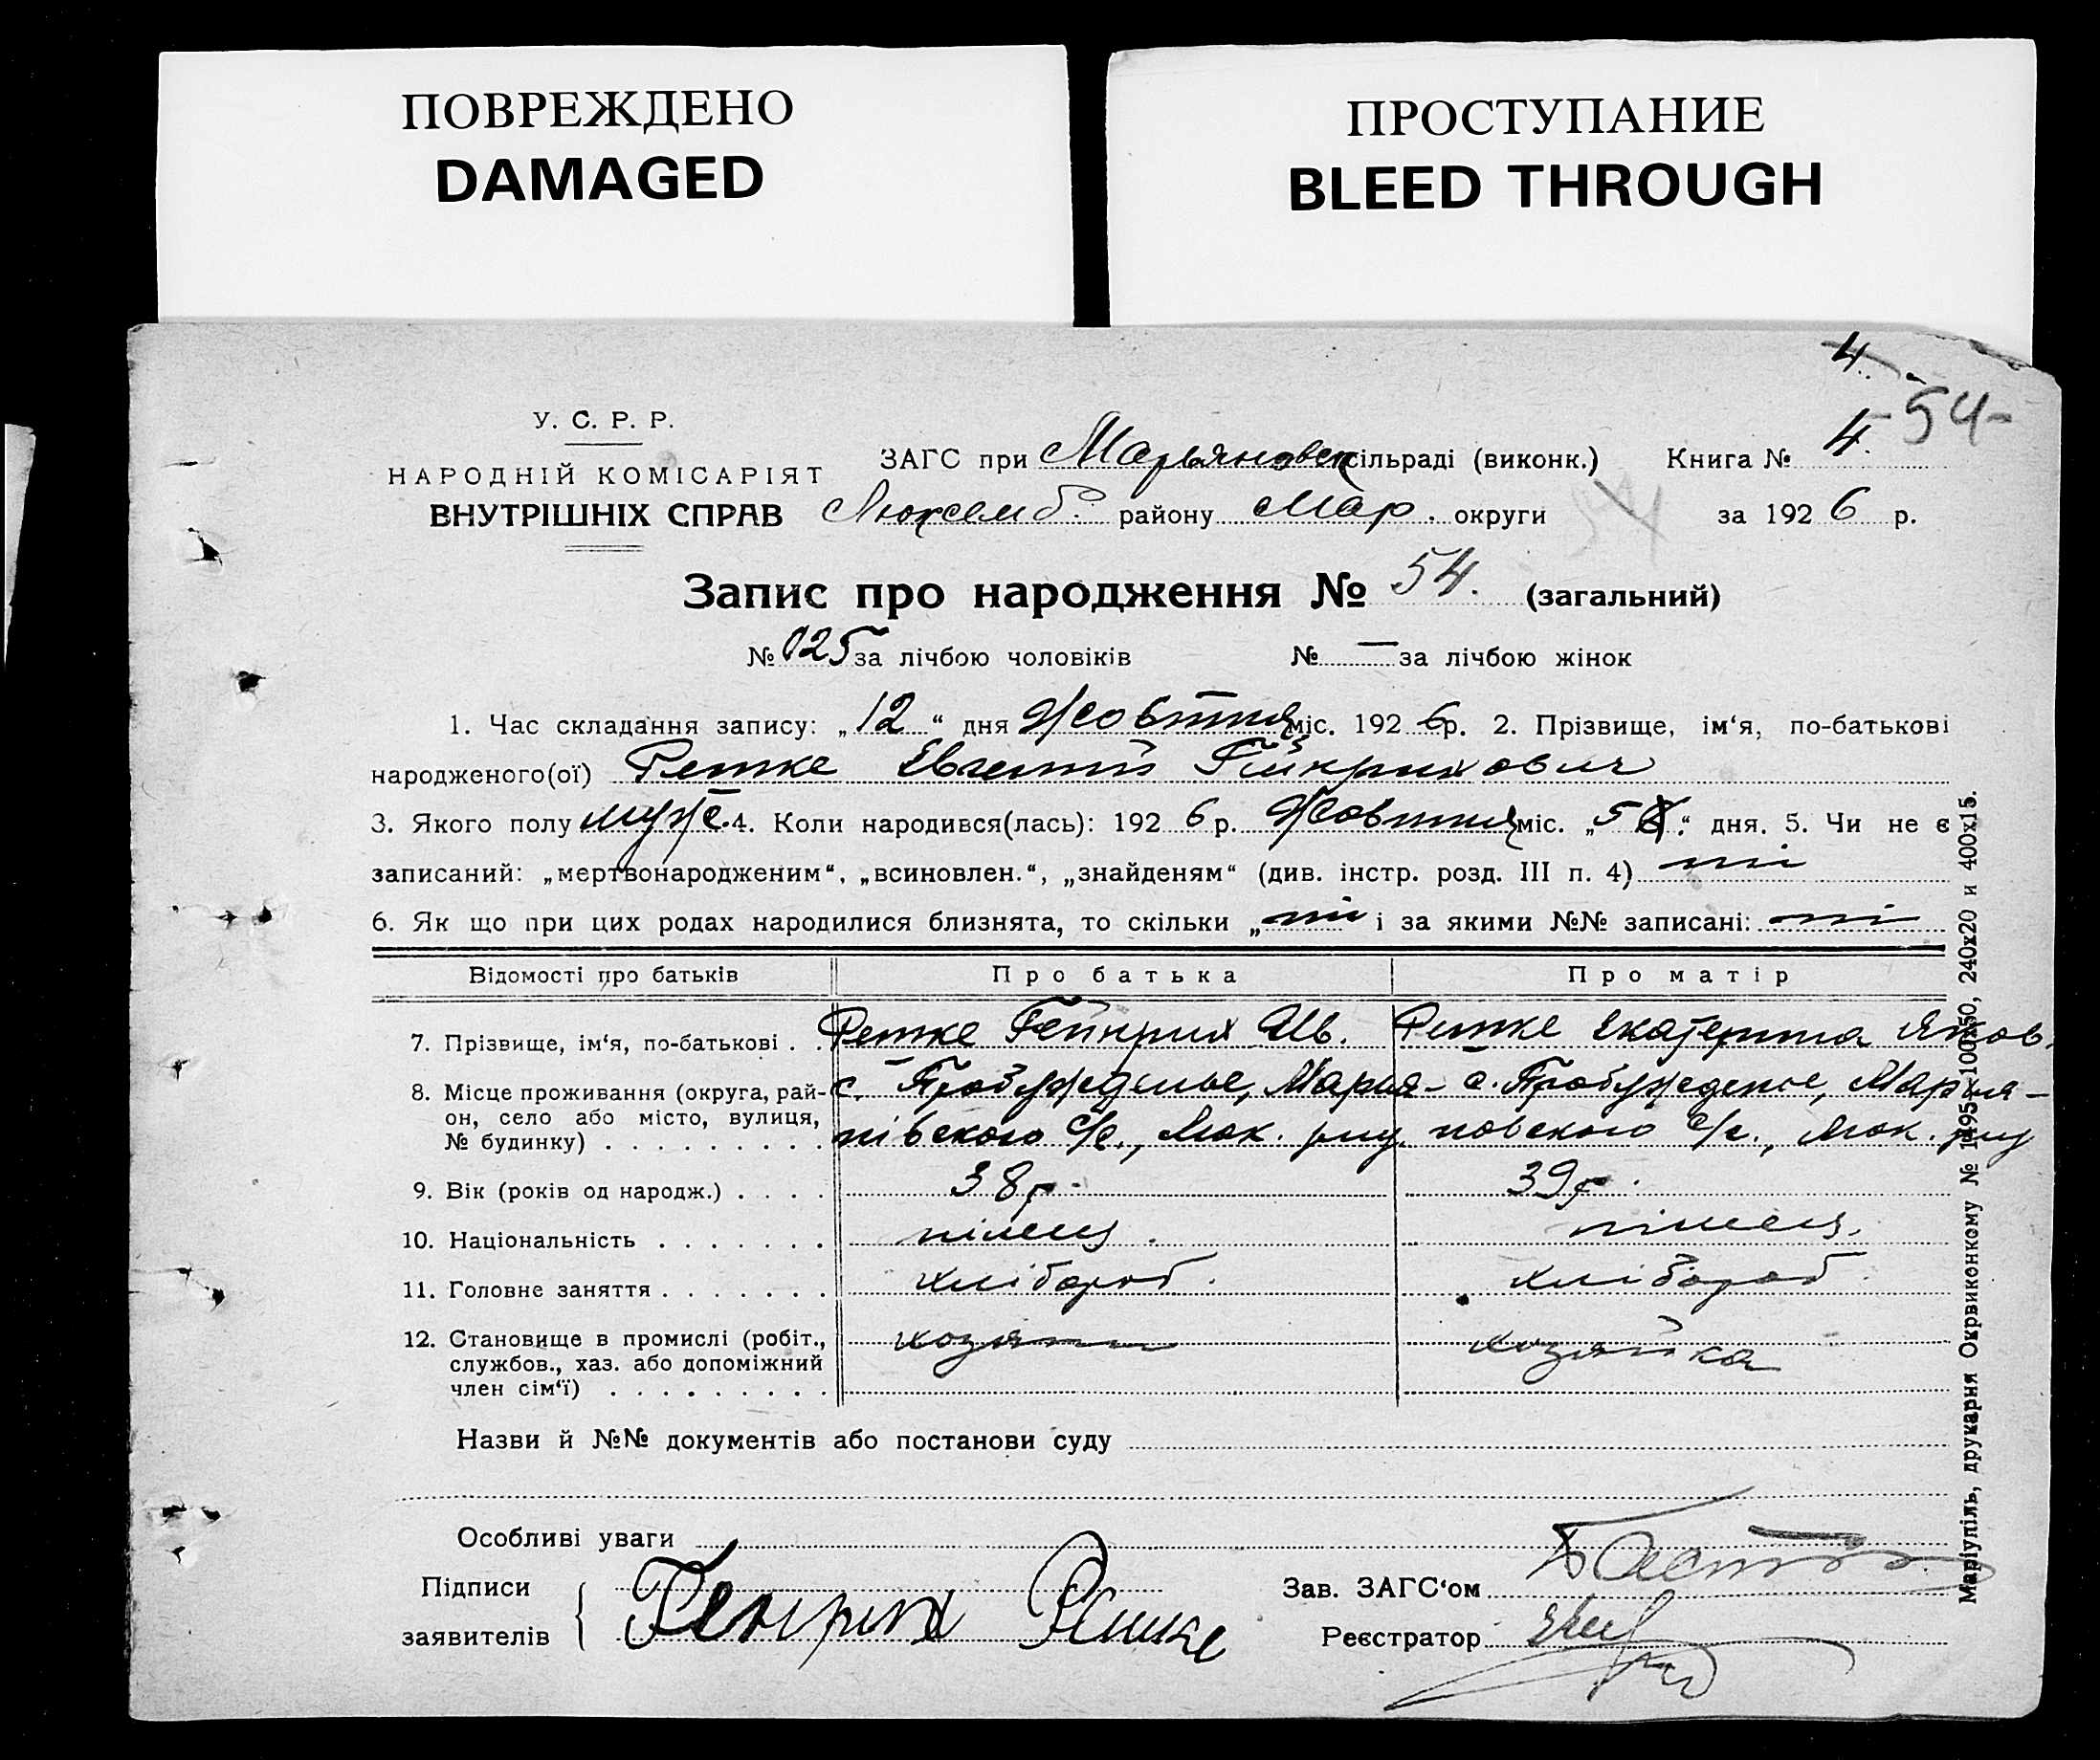 ПОВРЕЖДЕНО
DAMAGED
ПРОСТУПАНИЕ
BLEED THROUGH
4.
54
У. С. Р. Р.
НАРОДНІЙ КОМІСАРІЯТ
ВНУТРІШНІХ СПРАВ
ЗАГС при Марьяновск сільраді (виконк.) Книга № 4.
Люксемб. району Мар. округи за 1926 р.
54
Запис про народження № 54. (загальний)
№ 025 за лічбою чоловіків № — за лічбою жінок
1. Час складання запису: „12“ дня Жовтня міс. 1926 р. 2. Прізвище, ім‘я, по-батькові
народженого(ої) Ретке Евгений Гейнрихович
3. Якого полу муж. 4. Коли народився(лась): 1926 р. Жовтня міс. „5“ дня. 5. Чи не є
записаний: „мертвонародженим“, „всиновлен.“, „знайденям“ (див. інстр. розд. III п. 4) ні
6. Як що при цих родах народилися близнята, то скільки „ні і за якими №№ записані: ні
Відомості про батьків Про батька Про матір
7. Прізвище, ім‘я, по-батькові . . Ретке Гейнрих Ив. Ретке Екатерина Яков.
8. Місце проживання (округа, рай- с. Пробужденье, Мария- с. Пробужденье, Мария-
он, село або місто, вулиця,
№ будинку) . . . . . . . . . нівского с/с., Люк. рну новского с/с., Люк. рну
9. Вік (років од народж.) . . . . 38 г. 39 г.
10. Національність . . . . . . . німець. німець.
11. Головне заняття . . . . . . . хлібороб. хлібороб.
12. Становище в промислі (робіт., хозяин хозяйка
службов., хаз. або допоміжний
член сім‘ї) . . . . . . . . .
Назви й №№ документів або постанови суду
Особливі уваги
Підписи
заявителів Генрих Ретке
Зав. ЗАГС‘ом
Реєстратор
Маріупіль, друкарня Окрвиконкому № 1495-100х50, 240х20 и 400х15.